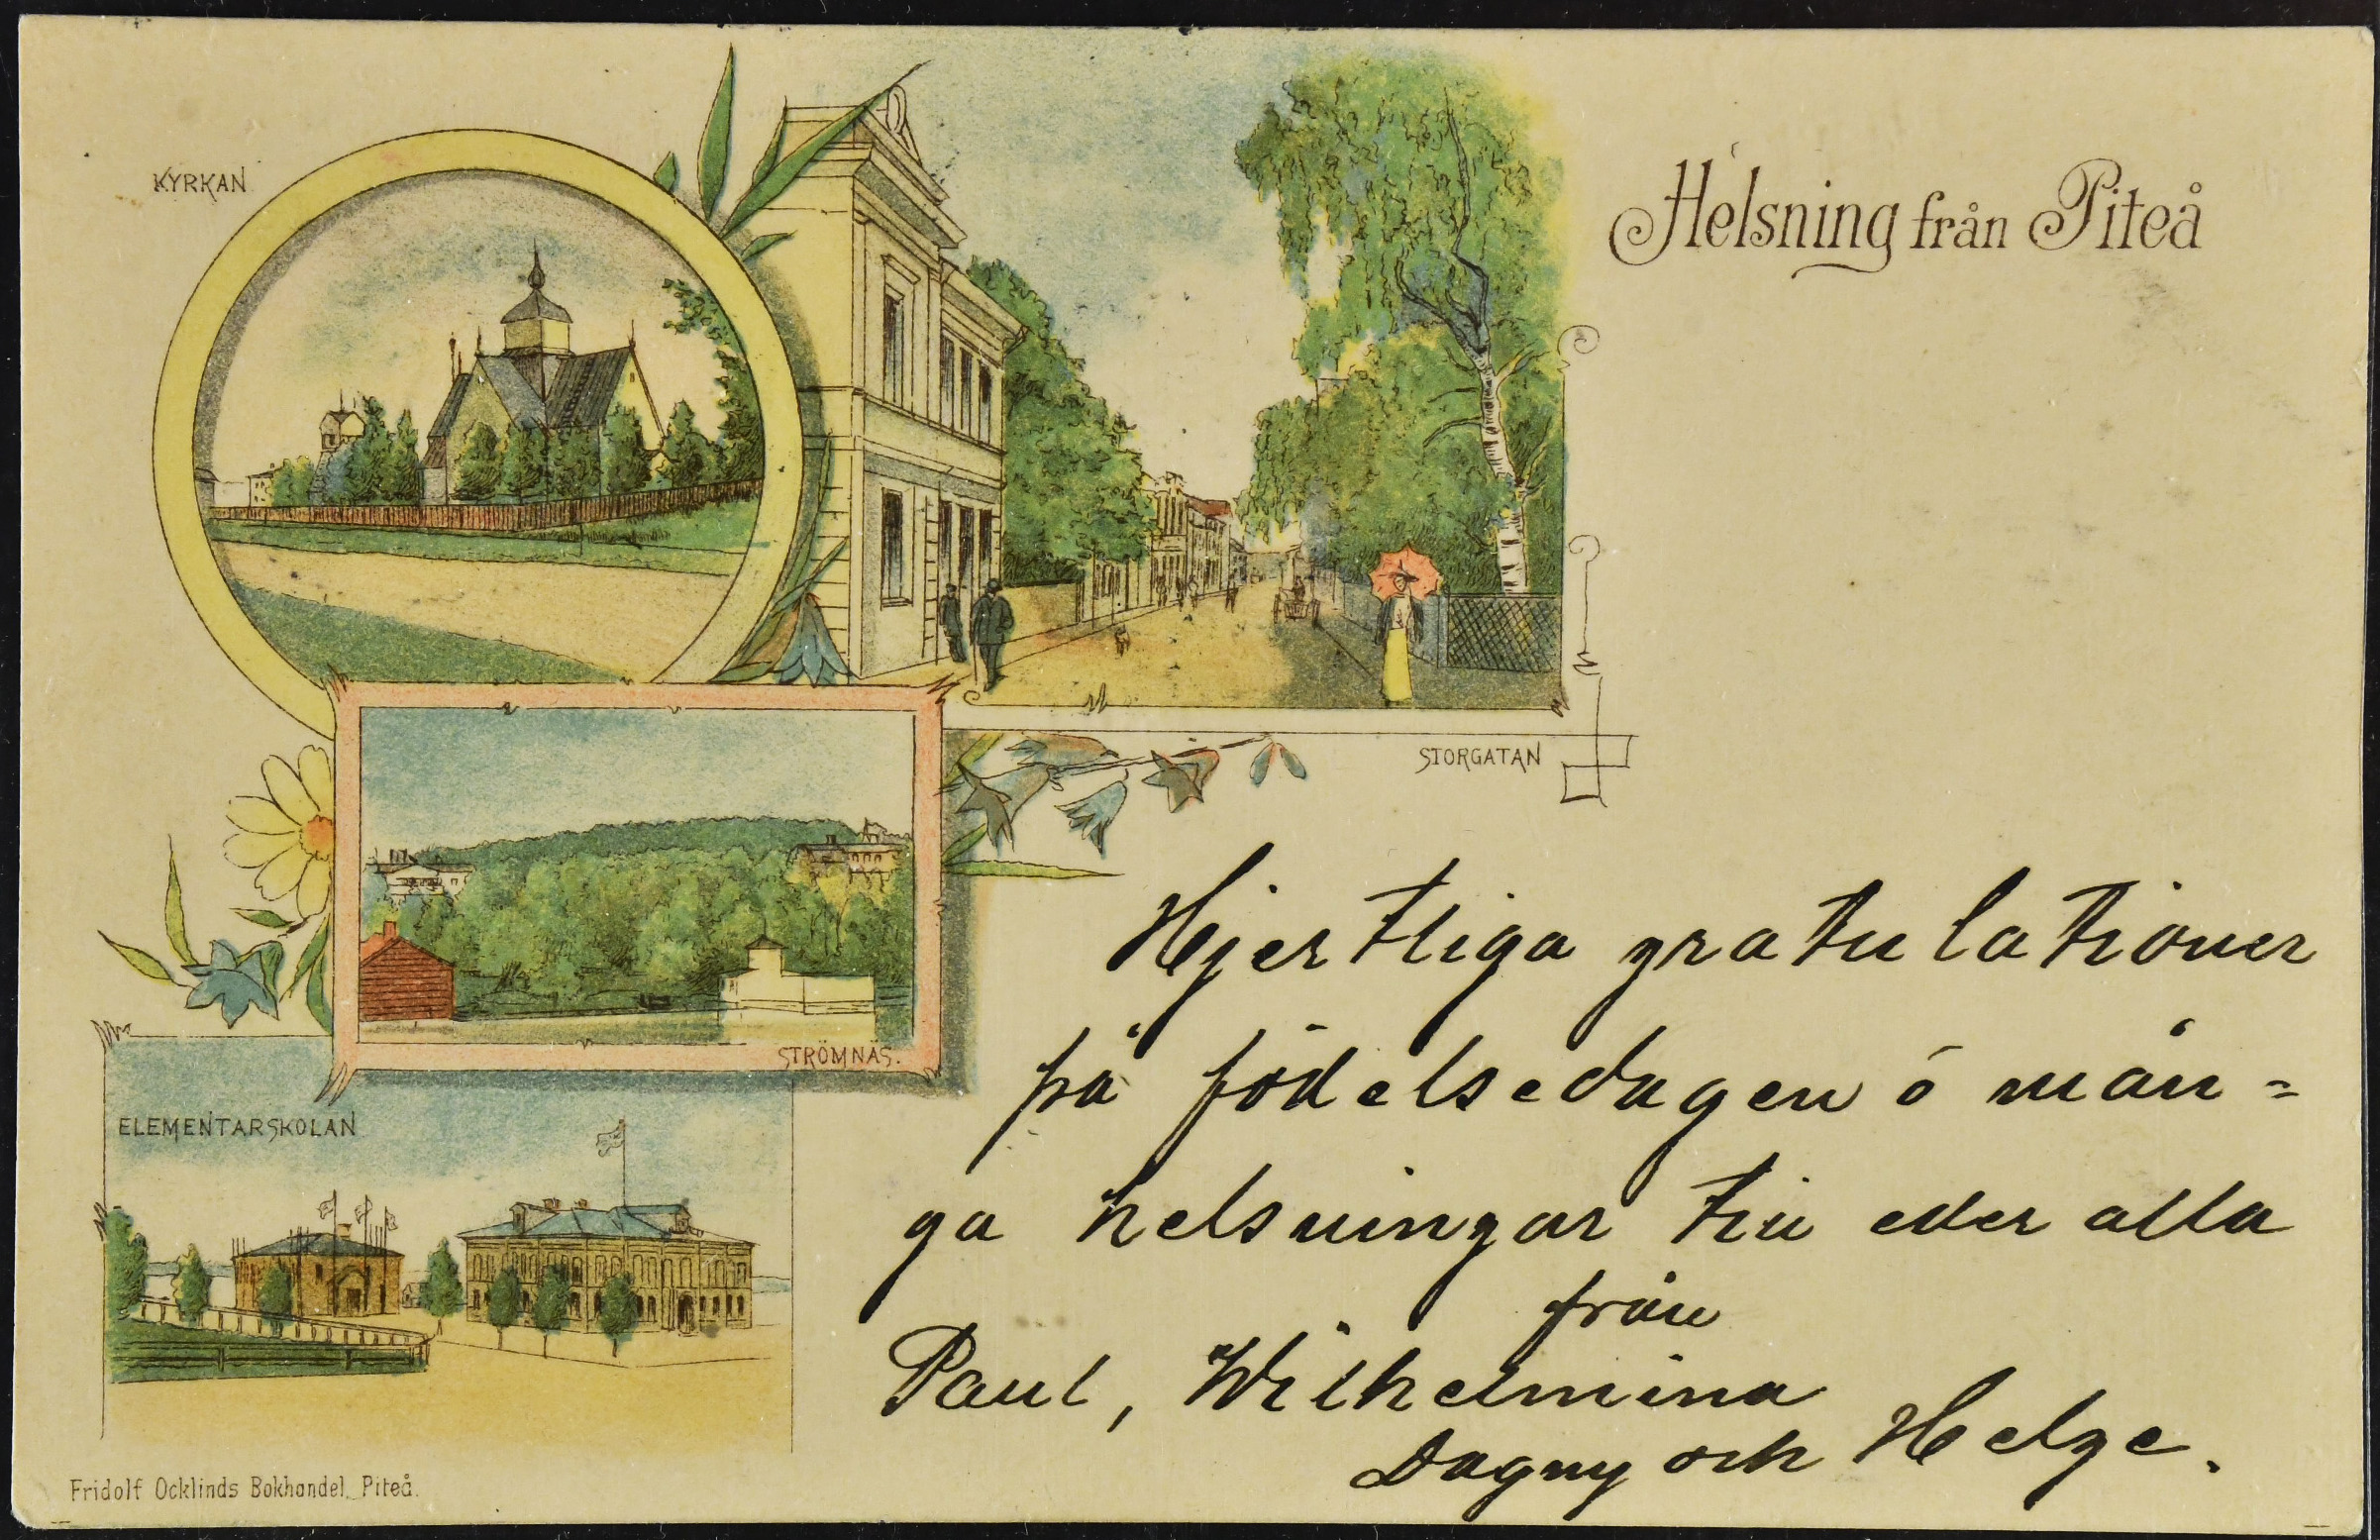 KYRKAN
Helsning från Piteå
STORGATAN
STRÖMNÄS.
ELEMENTARSKOLAN
Hjertliga gratulationer
på födelsedagen ó mån=
ga helsningar till eder alla
från
Paul, Wilhelmina
Dagny och Helge.
Fridolf Ocklinds Bokhandel, Piteå.